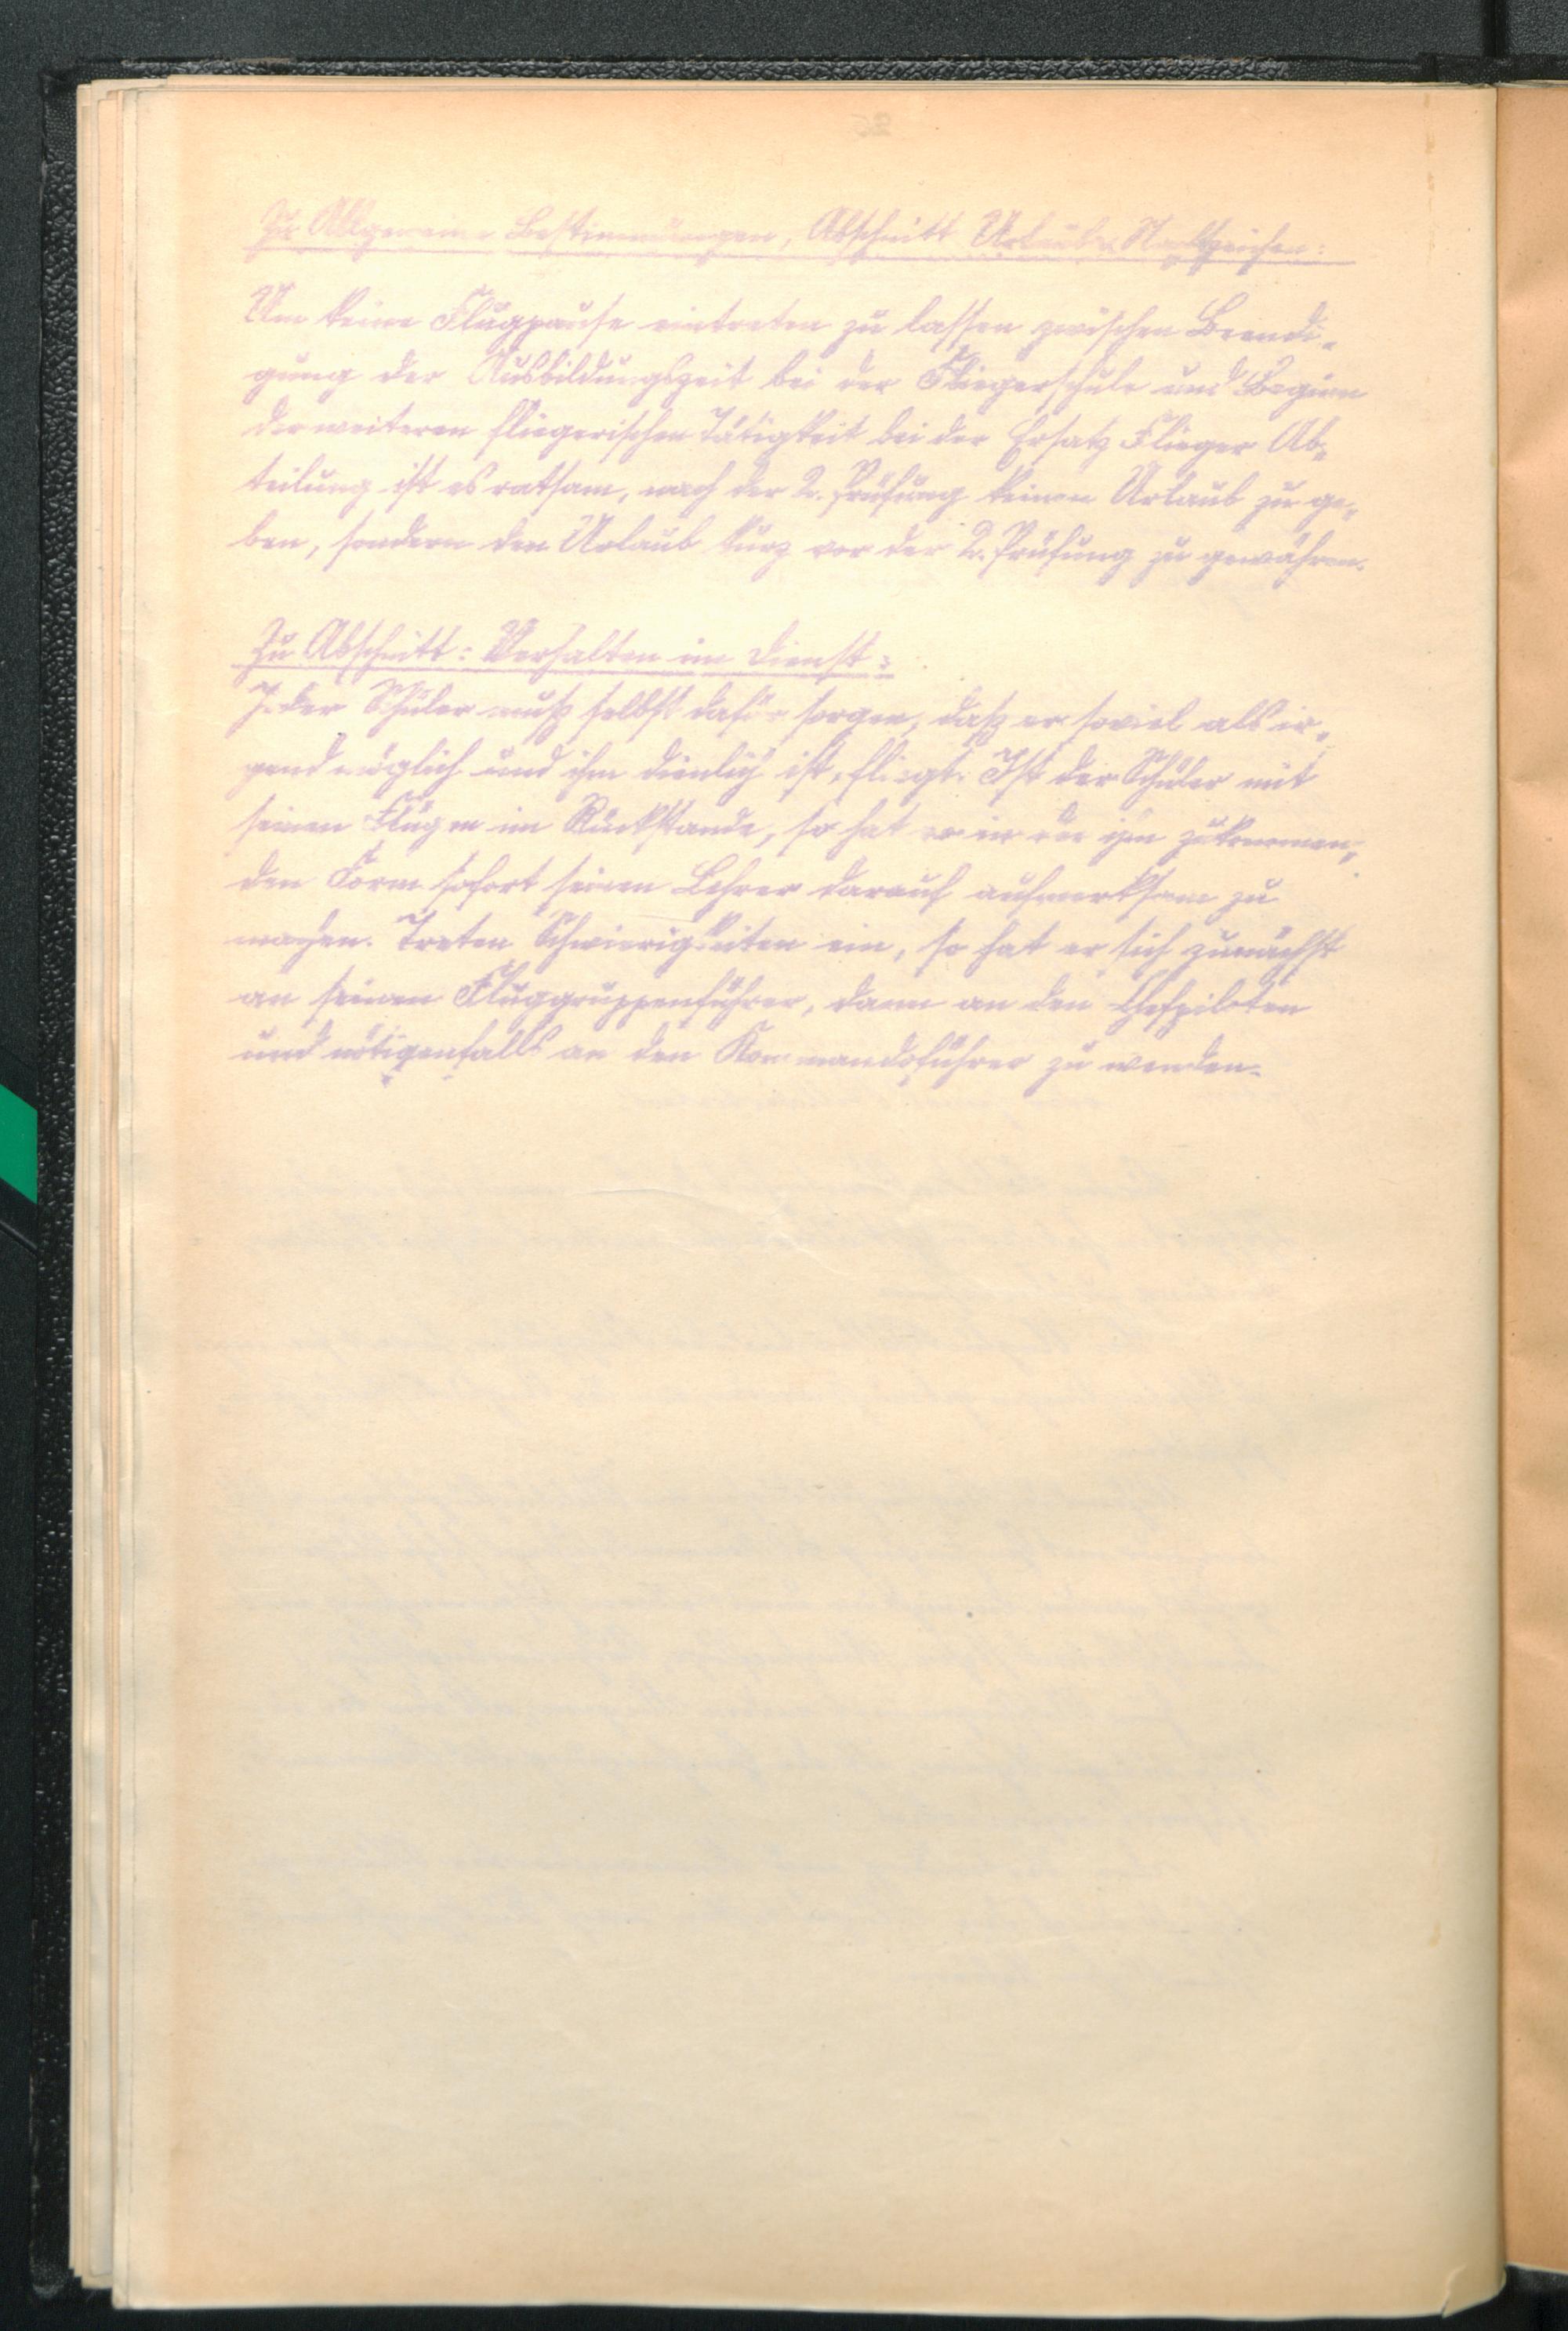 Zu Allgemeine Bestimmungen, Abschnitt Urlaub
Um keine Flugpause eintreten zu lassen zwischen Beendi-
gung der Ausbildungszeit bei der Fliegerschule und Beginn
der weiteren fliegerischen Tätigkeit bei der Ersatz Flieger Ab-
teilung ist es ratsam, nach der 2. Prüfung keinen Urlaub zu ge-
ben, sondern den Urlaub kurz vor der 2. Prüfung zu gewähren.
Zu Abschnitt: Verhalten im Dienst:
Jeder Schüler muß selbst dafür sorgen, daß er soviel als ir-
gend möglich und ihm dienlich ist, fliegt. Ist der Schüler mit
seinen Flügen im Rückstande, so hat er in der ihm zukommen-
den Form sofort seinen Lehrer darauf aufmerksam zu
machen. Treten Schwierigkeiten ein, so hat er sich zunächst
an seinen Fluggruppenführer, dann an den Chefpiloten
und nötigenfalls an den Kommandoführer zu wenden.